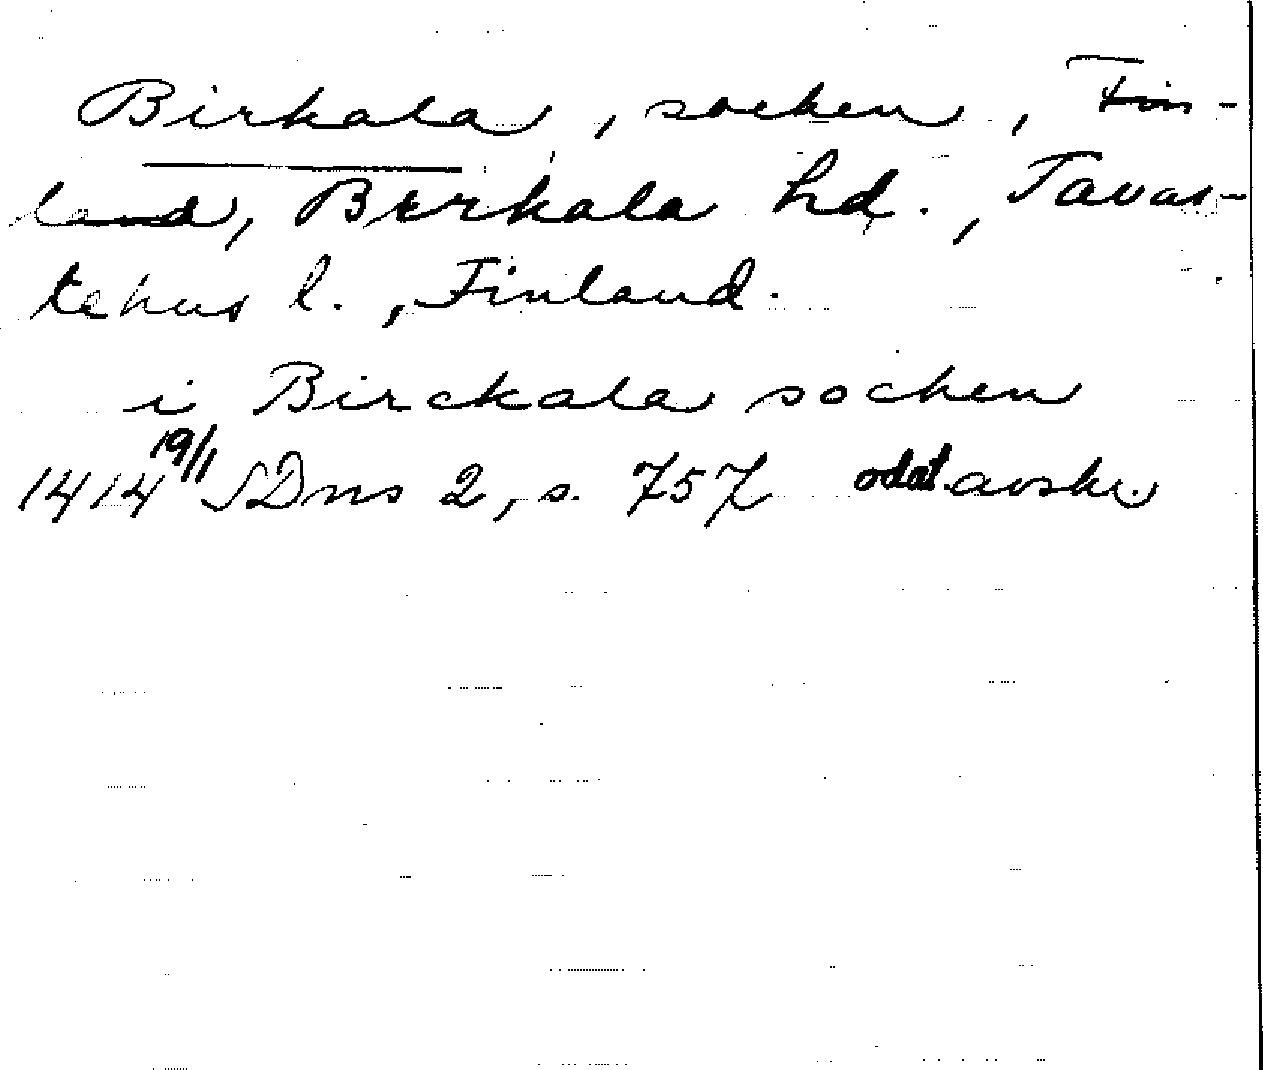 Birkala, socken, Fin-
land, Birkala hd., Tavas-
tehus l., Finland.
i Birckala sochen
1414 19/1 SDns 2, s. 757 odat. avskr.